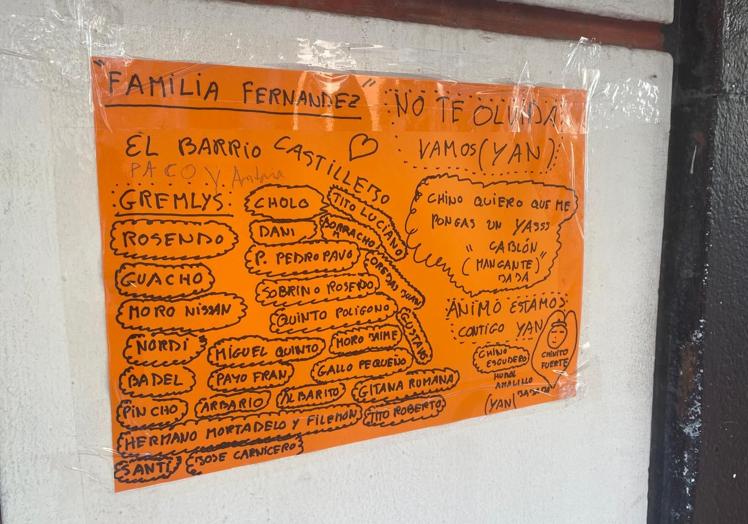 "FAMILIA FERNANDEZ"
NO TE OLVIDA
VAMOS (YAN)
EL BARRIO CASTILLEJO
PACO Y
GREMLYS
CHOLO
TITO LUCIANO
ROSENDO
DANI
BORRACHO
P. PEDRO PAVO
OREJAS JUAN
GUACHO
SOBRINO ROSENDO
MORO NISSAN
QUINTO POLIGONO
GUSTAVO
NORDI
MIGUEL QUINTO
MORO JAIME
BADEL
PAYO FRAN
GALLO PEQUEÑO
PINCHO
ARBARIO
ALBARITO
GITANA RUMANA
HERMANO MORTADELO Y FILEMON
TITO ROBERTO
SANTI
JOSE CARNICERO
CHINO QUIERO QUE ME
PONGAS UN YASSS
" CABLÓN
(MANGANTE)"
JAJA
ÁNIMO ESTAMOS
CONTIGO YAN
CHINO
ESCUDERO
CHINITO
FUERTE
AMALILLO
(YAN)